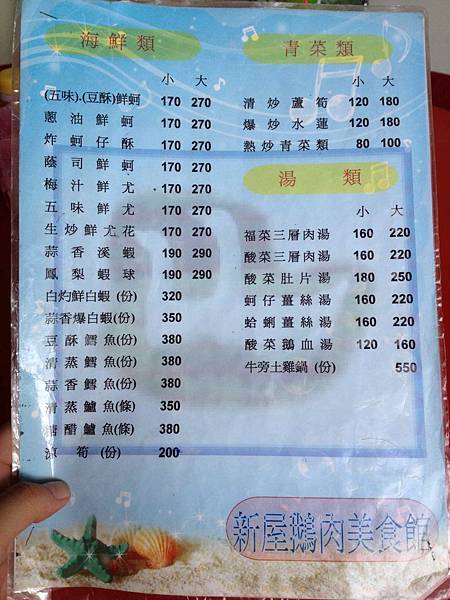 海鮮類
小 大
(五味).(豆酥)鮮蚵 170 270
蔥油鮮蚵 170 270
炸蚵仔酥 170 270
蔭司鮮蚵 170 270
梅汁鮮尤 170 270
五味鮮尤 170 270
生炒鮮尤花 170 270
蒜香溪蝦 190 290
鳳梨蝦球 190 290
白灼鮮白蝦(份) 320
蒜香爆白蝦(份) 350
豆酥鱈魚(份) 380
清蒸鱈魚(份) 380
蒜香鱈魚(份) 380
清蒸鱸魚(條) 350
糖醋鱸魚(條) 380
涼筍(份) 200
青菜類
小 大
清炒蘆筍 120 180
爆炒水蓮 120 180
熱炒青菜類 80 100
湯類
小 大
福菜三層肉湯 160 220
酸菜三層肉湯 160 220
酸菜肚片湯 180 250
蚵仔薑絲湯 160 220
蛤蜊薑絲湯 160 220
酸菜鵝血湯 120 160
牛旁土雞鍋(份) 550
新屋鵝肉美食館